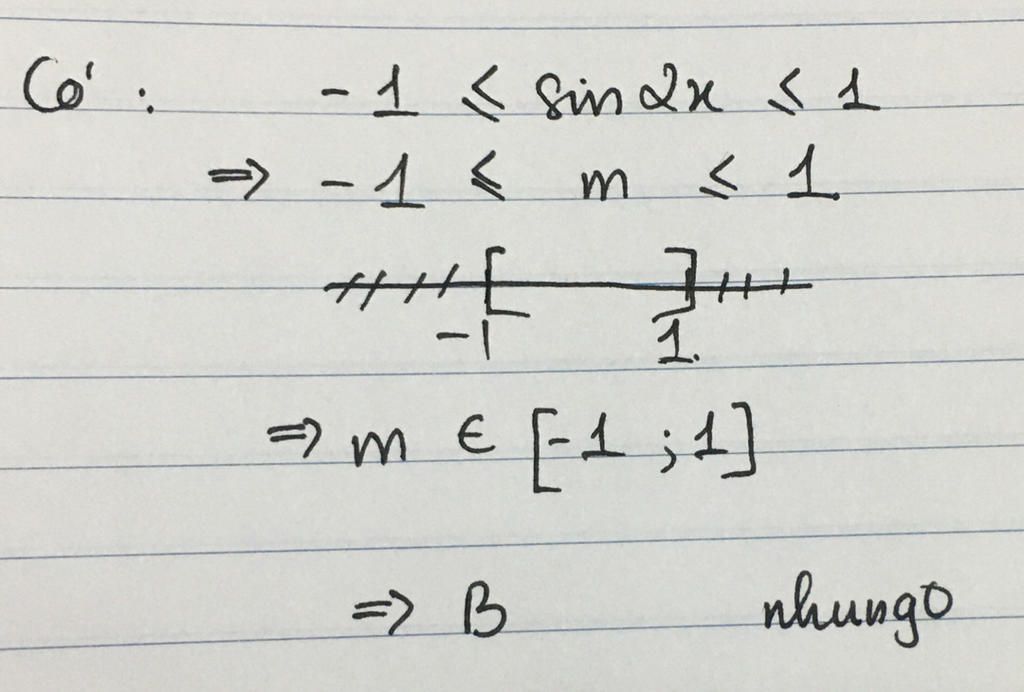 Có : -1 ≤ sin 2x ≤ 1
⇒ -1 ≤ m ≤ 1.
-1 1.
⇒ m ∈ [-1 ; 1]
⇒ B nhungo